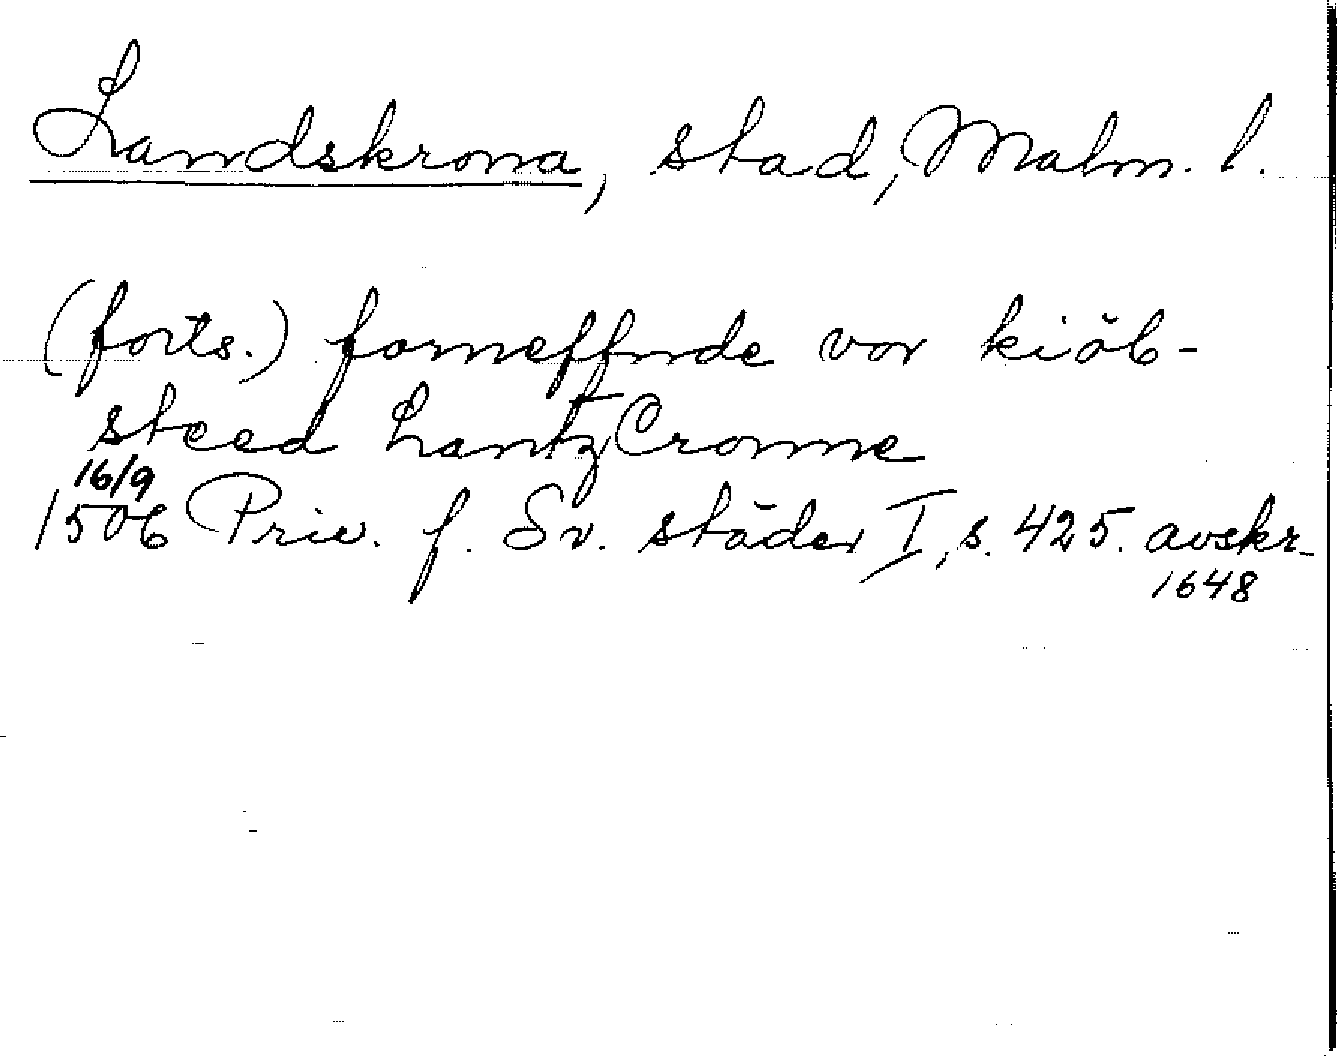 Landskrona, stad, Malm. l.
(forts.) forneffnde vor kiöb-
steed LantzCronne
16/9
1506 Priv. f. Sv. städer I, s. 425. avskr.
1648